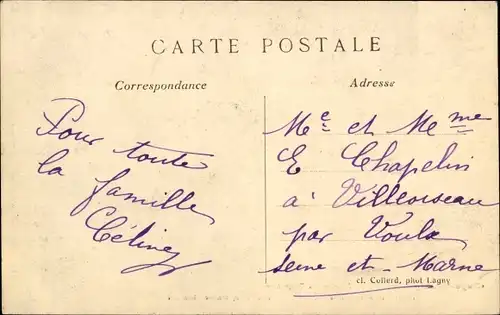 CARTE POSTALE
Correspondance
Adresse
Pour toute
la famille
Céline
Me et Mme
E Chapelin
à Villeoiseau
par Voulx
Seine et Marne
cl. Collerd, phot Lagny